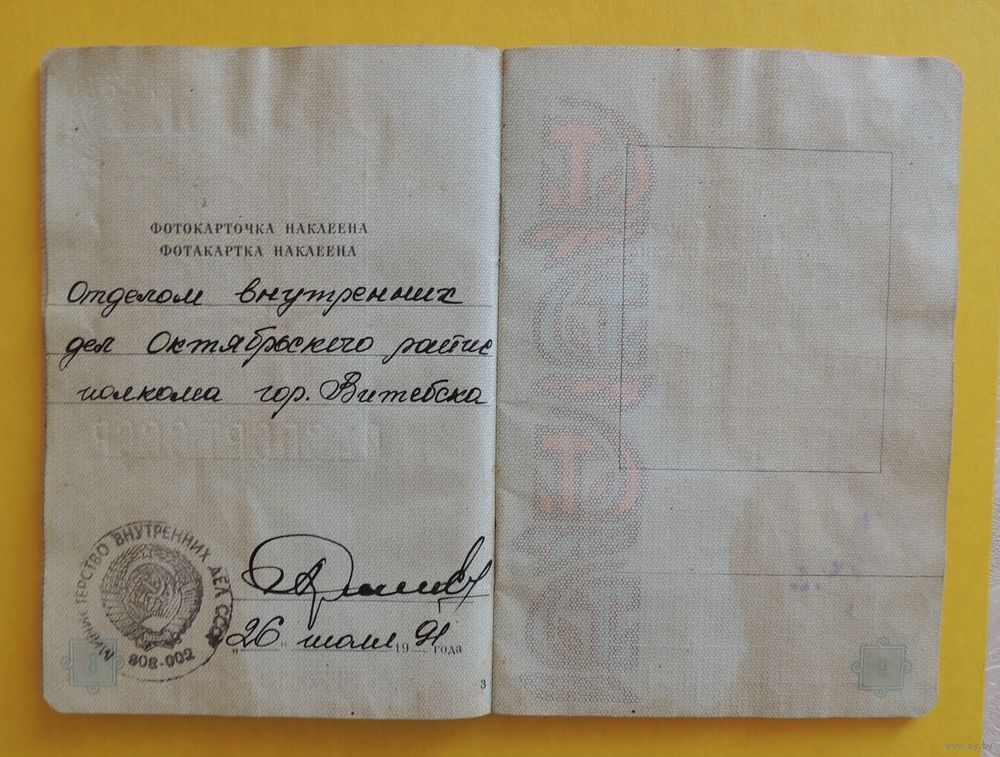 ФОТОКАРТОЧКА НАКЛЕЕНА
ФОТАКАРТКА НАКЛЕЕНА
Отделом внутренних
дел Октябрьского райис
полкома гор. Витебска
МИНИСТЕРСТВО ВНУТРЕННИХ ДЕЛ СССР
808-002
„26“ июля 1991 года
3
8
9
www.ay.by